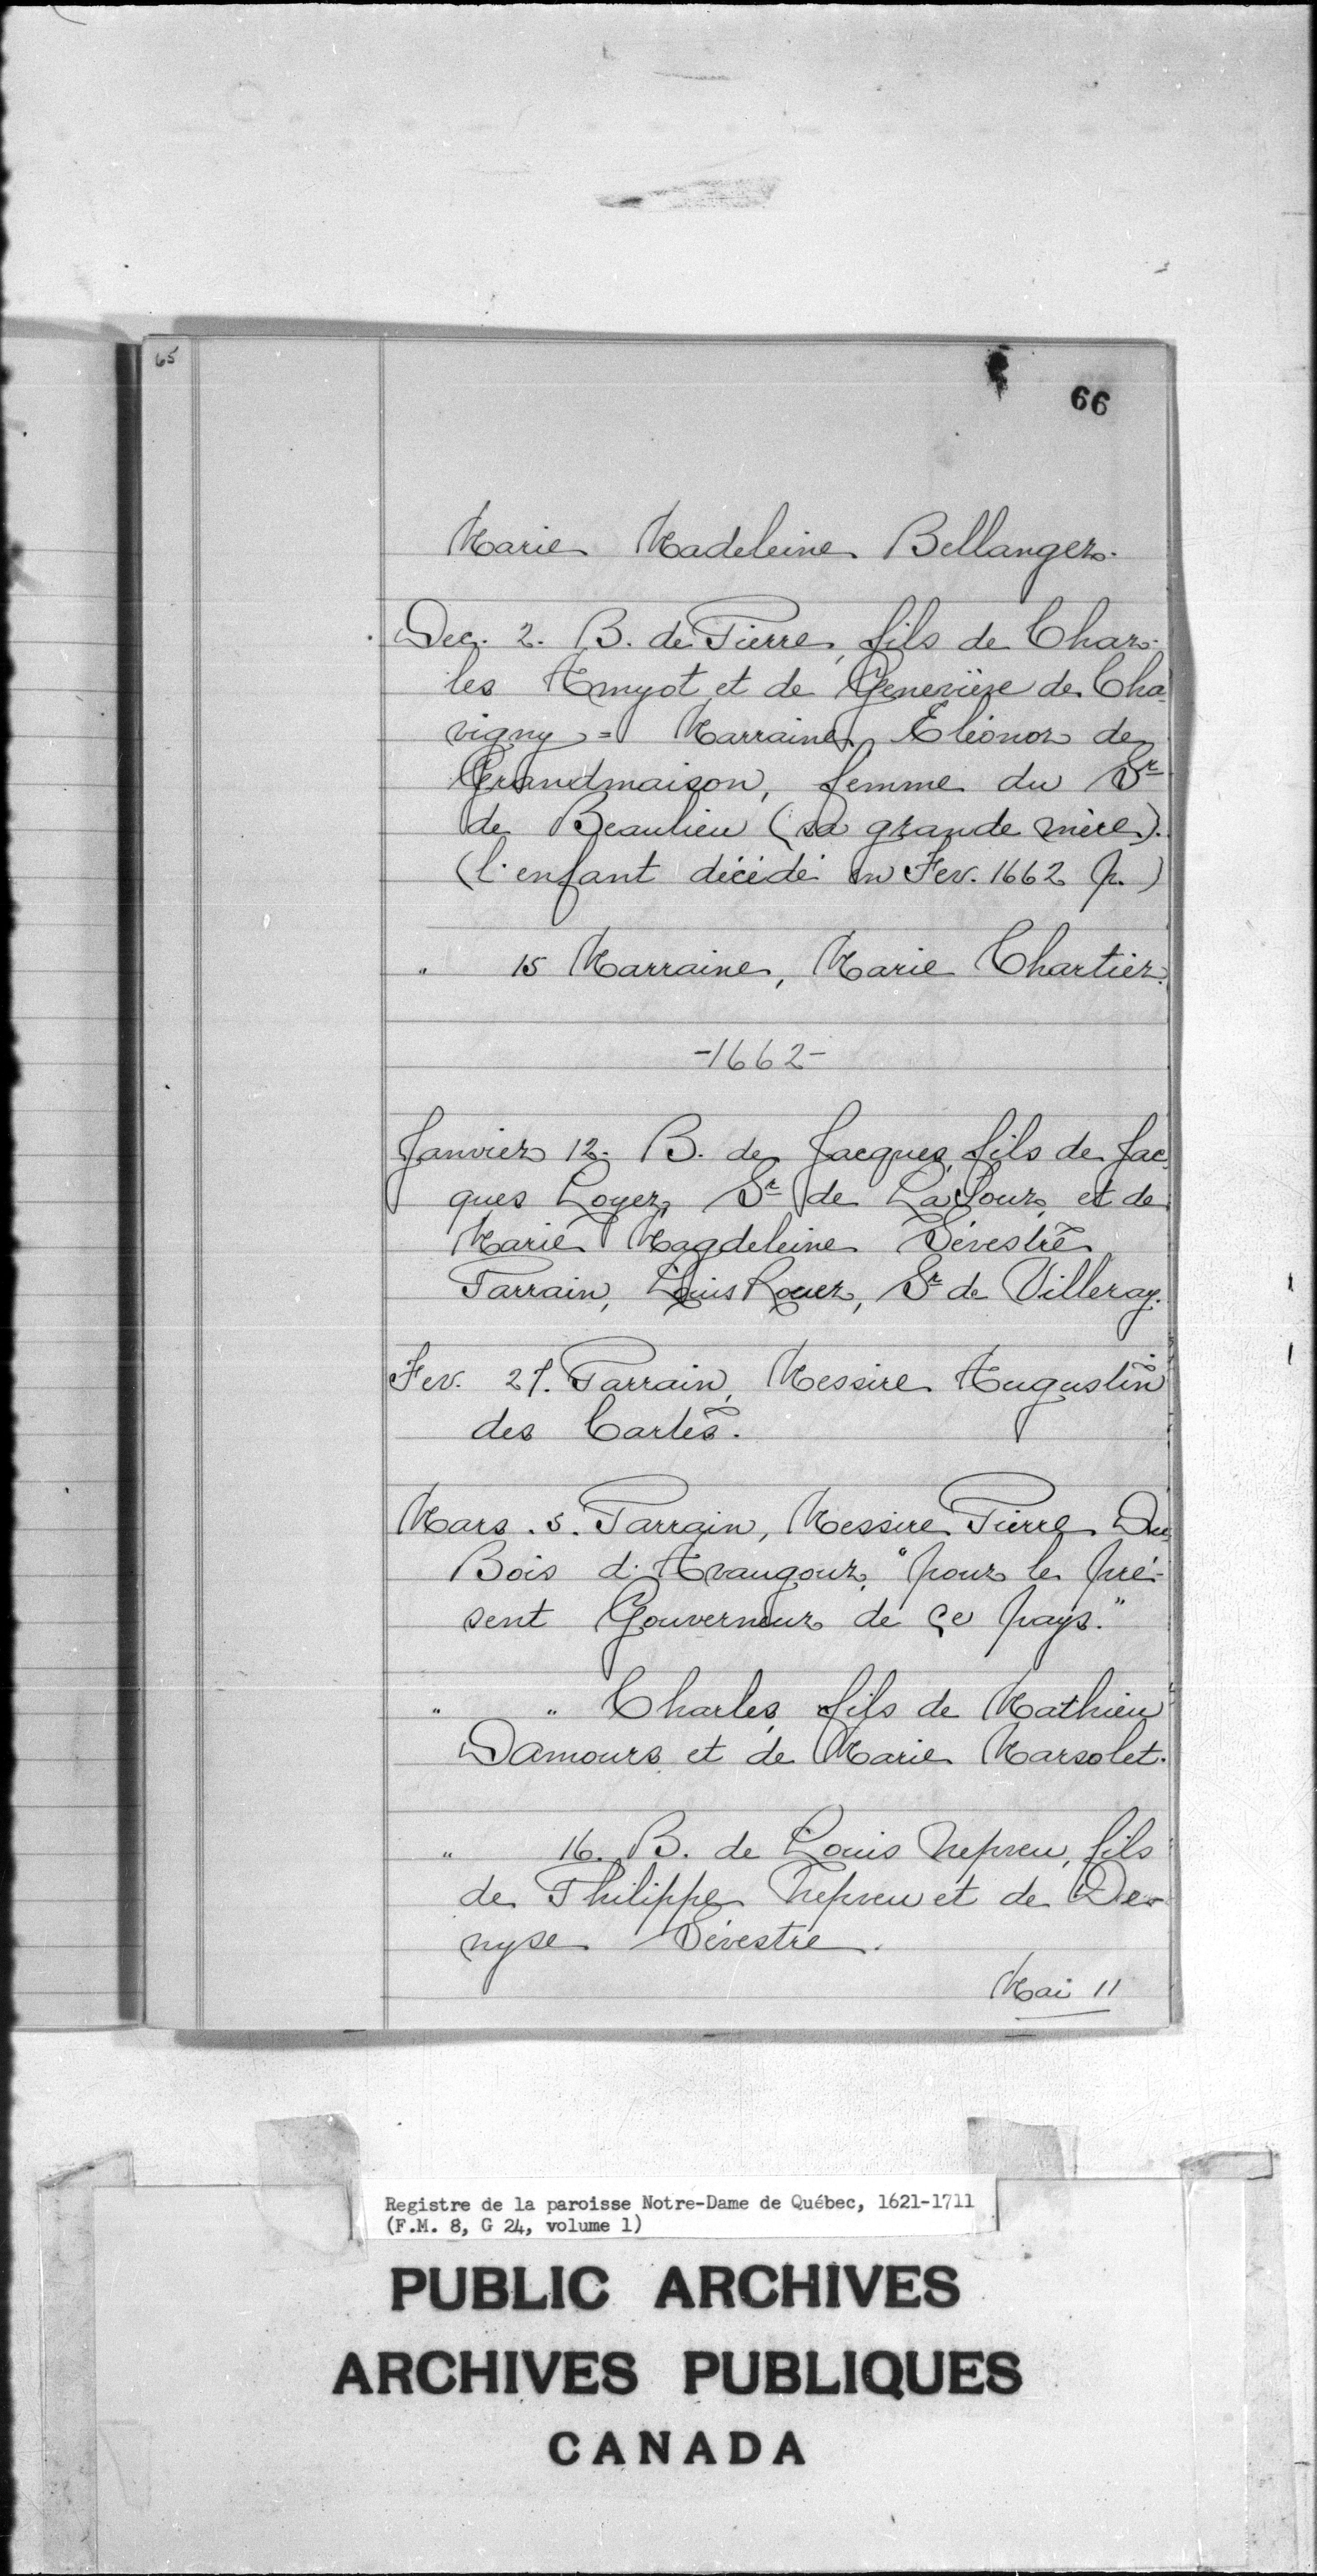 65
66
Marie Madeleine Bellanger.
Dec. 2. B. de Pierre, fils de Char-
les Amyot et de Geneviève de Cha-
vigny = Marraine, Eléonor de
Grandmaison, femme du Sr
de Beaulieu (sa grande mère).
(l'enfant décédé en Fev. 1662 p.)
" 15 Marraine, Marie Chartier.
-1662-
Janvier 12. B. de Jacques, fils de Jac-
ques Loyer, Sr de LaTour, et de
Marie Magdeleine Sévestre
Parrain, Louis Rouer, Sr de Villeray.
Fev. 27. Parrain, Messire Augustin
des Cartes.
Mars. 5. Parrain, Messire Pierre Du
Bois d'Avaugour, "pour le pré-
sent Gouverneur de ce pays."
" " Charles, fils de Mathieu
Damours et de Marie Marsolet.
" 16. B. de Louis Nepveu, fils
de Philippe Nepveu et de De-
nyse Sévestre.
Mai 11
Registre de la paroisse Notre-Dame de Québec, 1621-1711
(F.M. 8, G 24, volume 1)
PUBLIC ARCHIVES
ARCHIVES PUBLIQUES
CANADA